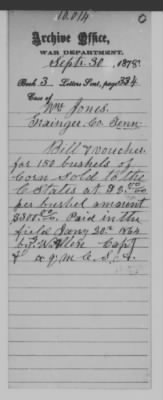 10,014
Archive Office,
WAR DEPARTMENT,
Septr. 30 1878
Book 3 Letters Sent, page 334
Case of
Wm Jones.
Grainger Co. Tenn.
Bill & voucher
for 150 bushels of
Corn sold to the
C States at $2.00
per bushel amount
$300.00. Paid in the
field Jany 20th 1864
by Capt
& a q m C. S. A.